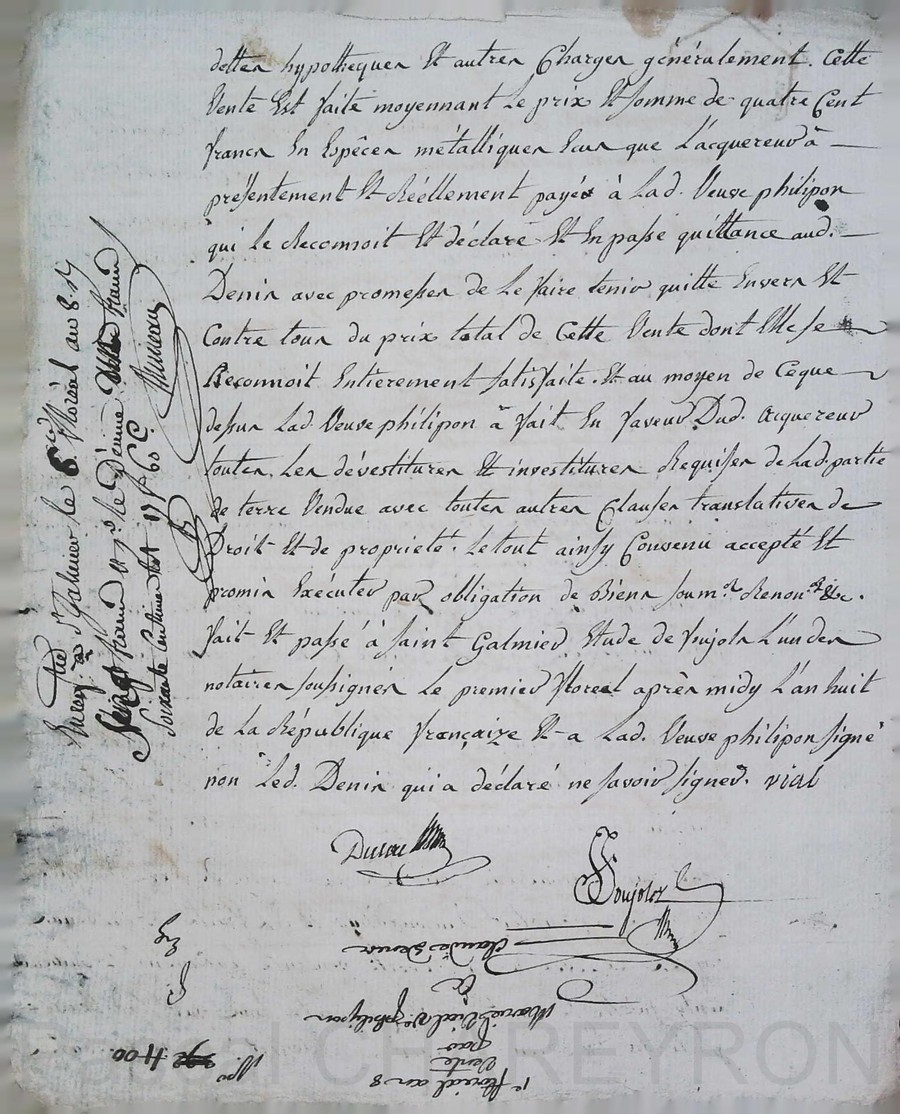 dettes hypotheques Et autres Charges généralement. Cette
Vente Est faite moyennant Le prix Et somme de quatre Cent
francs En Espêces métalliques que L'acquereur à
présentement Et Réellement payés à Lad. Veuve philipon
qui le Reconnoit Et déclare Et En passe quittance aud.
Denis avec promesses de Le faire tenir quitte Envers Et
Contre tous du prix total de Cette Vente dont Elle se
Reconnoit Entierement satisfaite. Et au moyen de Ceque
dessus Lad. Veuve philipon à fait En faveur Dud. Acquereur
toutes Les dévestitures Et investitures Requises de Lad. partie
de terre Vendue avec toutes autres Clauses translatives de
Droit Et de proprieté. Le tout ainsy Convenu accepté Et
promis Exécuter par obligation de Biens soum.on Renon.on &c.
fait Et passé à saint Galmier Etude de Pujols L'un des
notaires soussignes Le premier floreal après midy L'an huit
de La République françaize Et a Lad. Veuve philipon signé
non Led. Denis qui a déclaré ne savoir signer. vial
Pujols
Enreg. à St Galmier le 8 floréal an 8
francs
soixante Centimes 60 C
1er floreal an 8
Vente
par
Marie Vial Ve philipon
a
Claude Denis
400